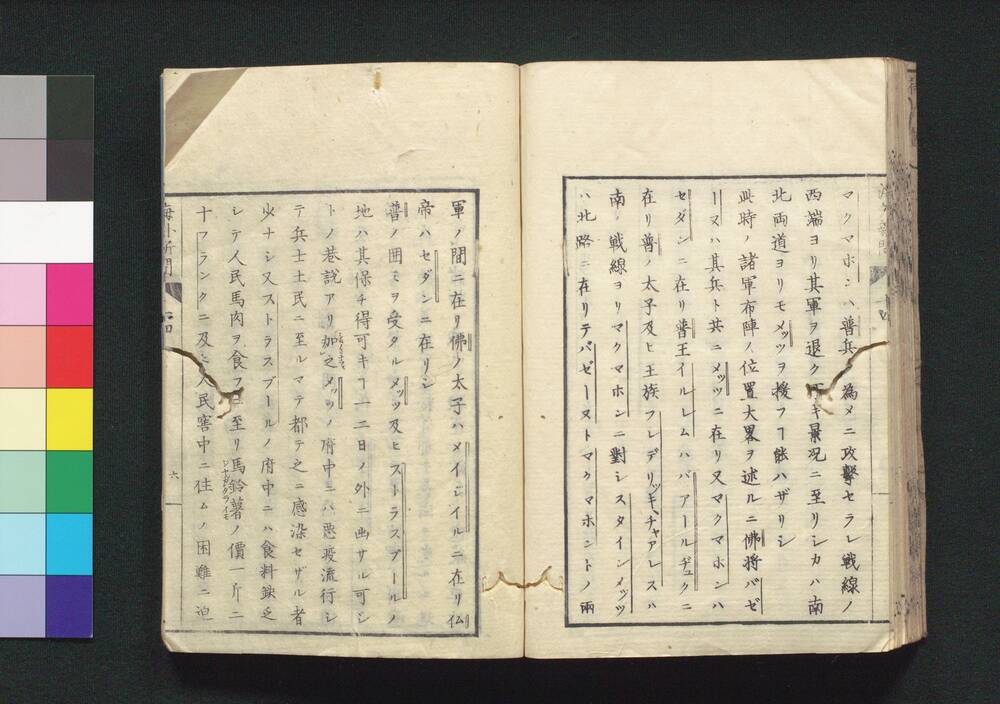 マクマホンハ普兵ノ為メニ攻撃セラレ戦線ノ
西端ヨリ其軍ヲ退クベキ景況ニ至リシカハ南
北両道ヨリモメッツヲ援フヿ能ハザリシ
此時ノ諸軍布陣ノ位置大畧ヲ述ルニ佛將バゼ
ーヌハ其兵ト共ニメッツニ在リ又マクマホンハ
セダンニ在リ普王イルレムハバアールヂュクニ
在リ普ノ太子及ヒ王族フレデリッキチャアレスハ
南ノ戦線ヨリマクマホンニ對シスタインメッツ
ハ北路ニ在リテバゼーヌトマクマホントノ兩
軍ノ間ニ在リ佛ノ太子ハメイジイルニ在リ仏
帝ハセダンニ在リシ
普ノ囲ミヲ受タルメッツ及ヒストラスブールノ
地ハ其保チ得可キヿ一二日ノ外ニ出サル可シ
トノ巷説アリ加之メッツノ府中ニハ悪疫流行シ
テ兵士土民ニ至ルマテ都テ之ニ感染セザル者
少ナシ又ストラスブールノ府中ニハ食料缺乏
シテ人民馬肉ヲ食フニ至リ馬鈴薯ノ價一斤ニ
ジャガタライモ
十フランクニ及ヒ人民窖中ニ住ムノ困難ニ迫
海外新聞
六